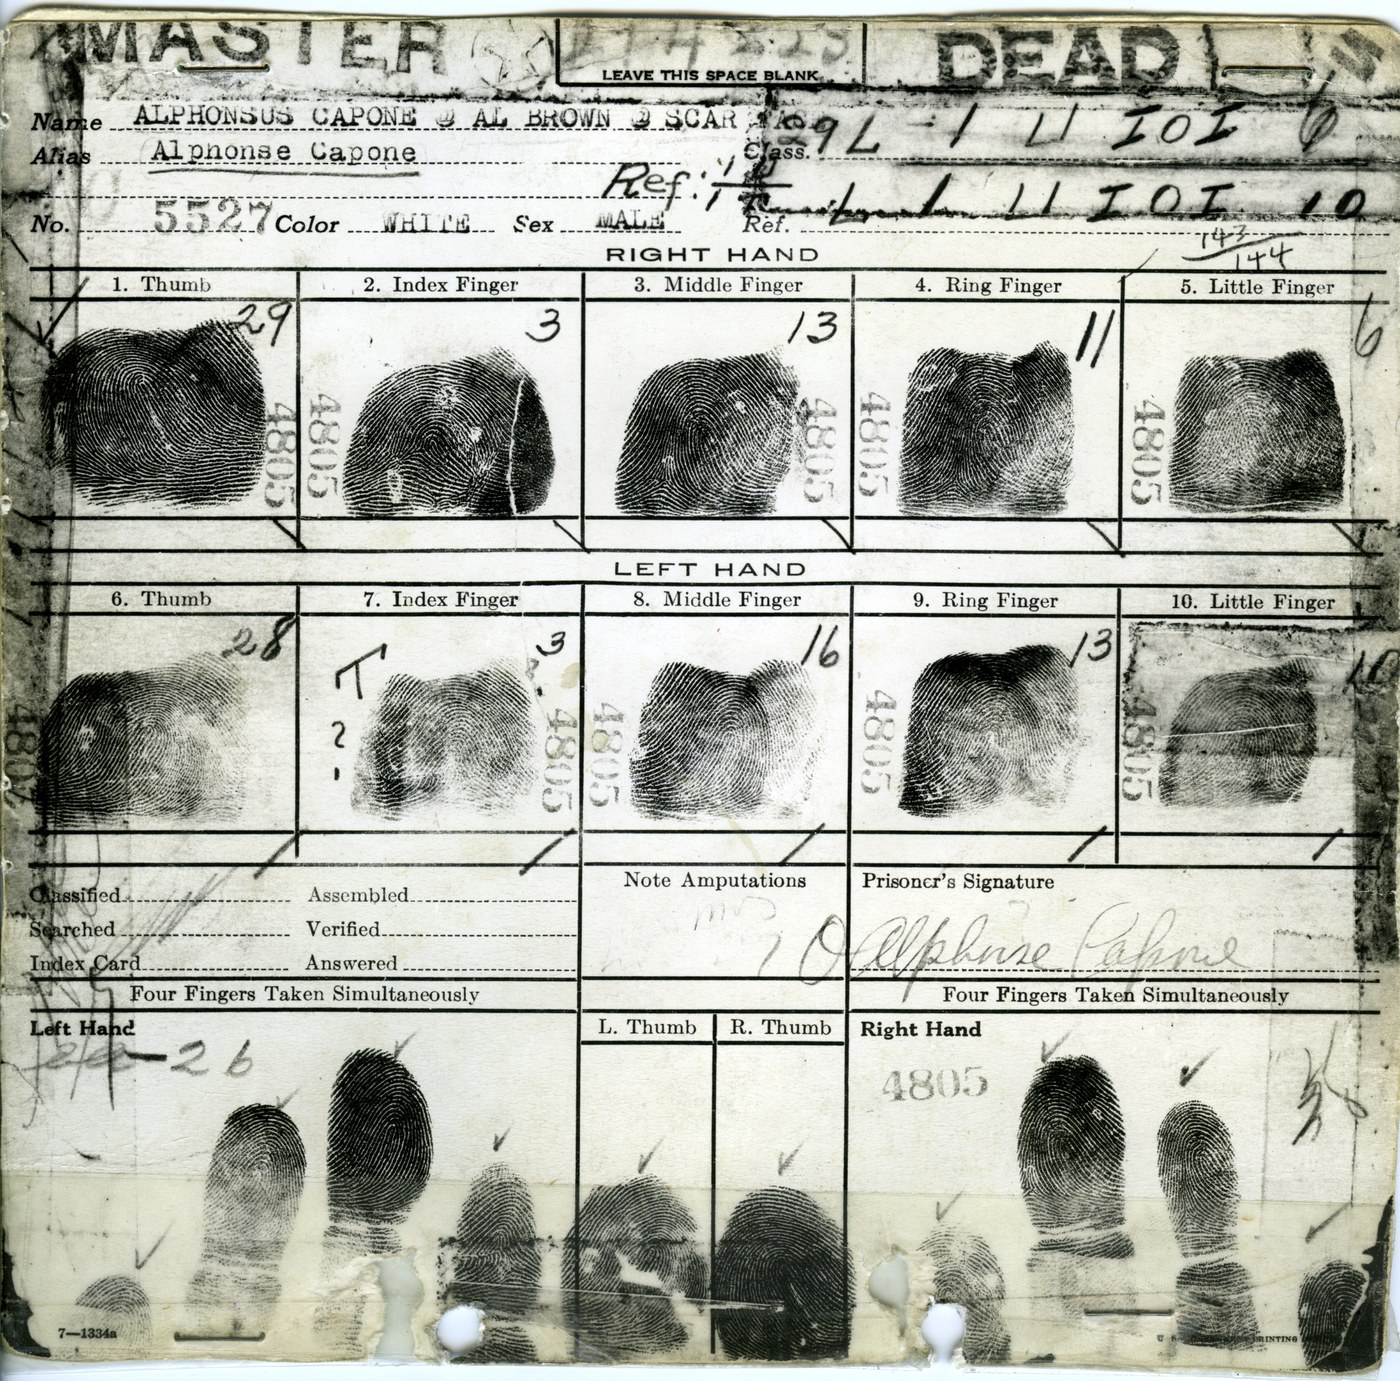 MASTER DEAD
LEAVE THIS SPACE BLANK
Name ALPHONSUS CAPONE @ AL BROWN @ SCAR
Alias Alphonse Capone Class. 29 L 1 U IOI 6
Ref: L 1 U IOI 10
No. 5527 Color WHITE Sex MALE Ref.
143
144
RIGHT HAND
1. Thumb 2. Index Finger 3. Middle Finger 4. Ring Finger 5. Little Finger
29 3 13 11 6
4805 4805 4805 4805 4805
LEFT HAND
6. Thumb 7. Index Finger 8. Middle Finger 9. Ring Finger 10. Little Finger
28 T ? 3 16 13 10
4805 4805 4805 4805 4805
Classified Assembled Note Amputations Prisoner's Signature
Searched Verified
Index Card Answered Alphonse Capone
Four Fingers Taken Simultaneously Four Fingers Taken Simultaneously
Left Hand L. Thumb R. Thumb Right Hand
26 4805
7—1334a